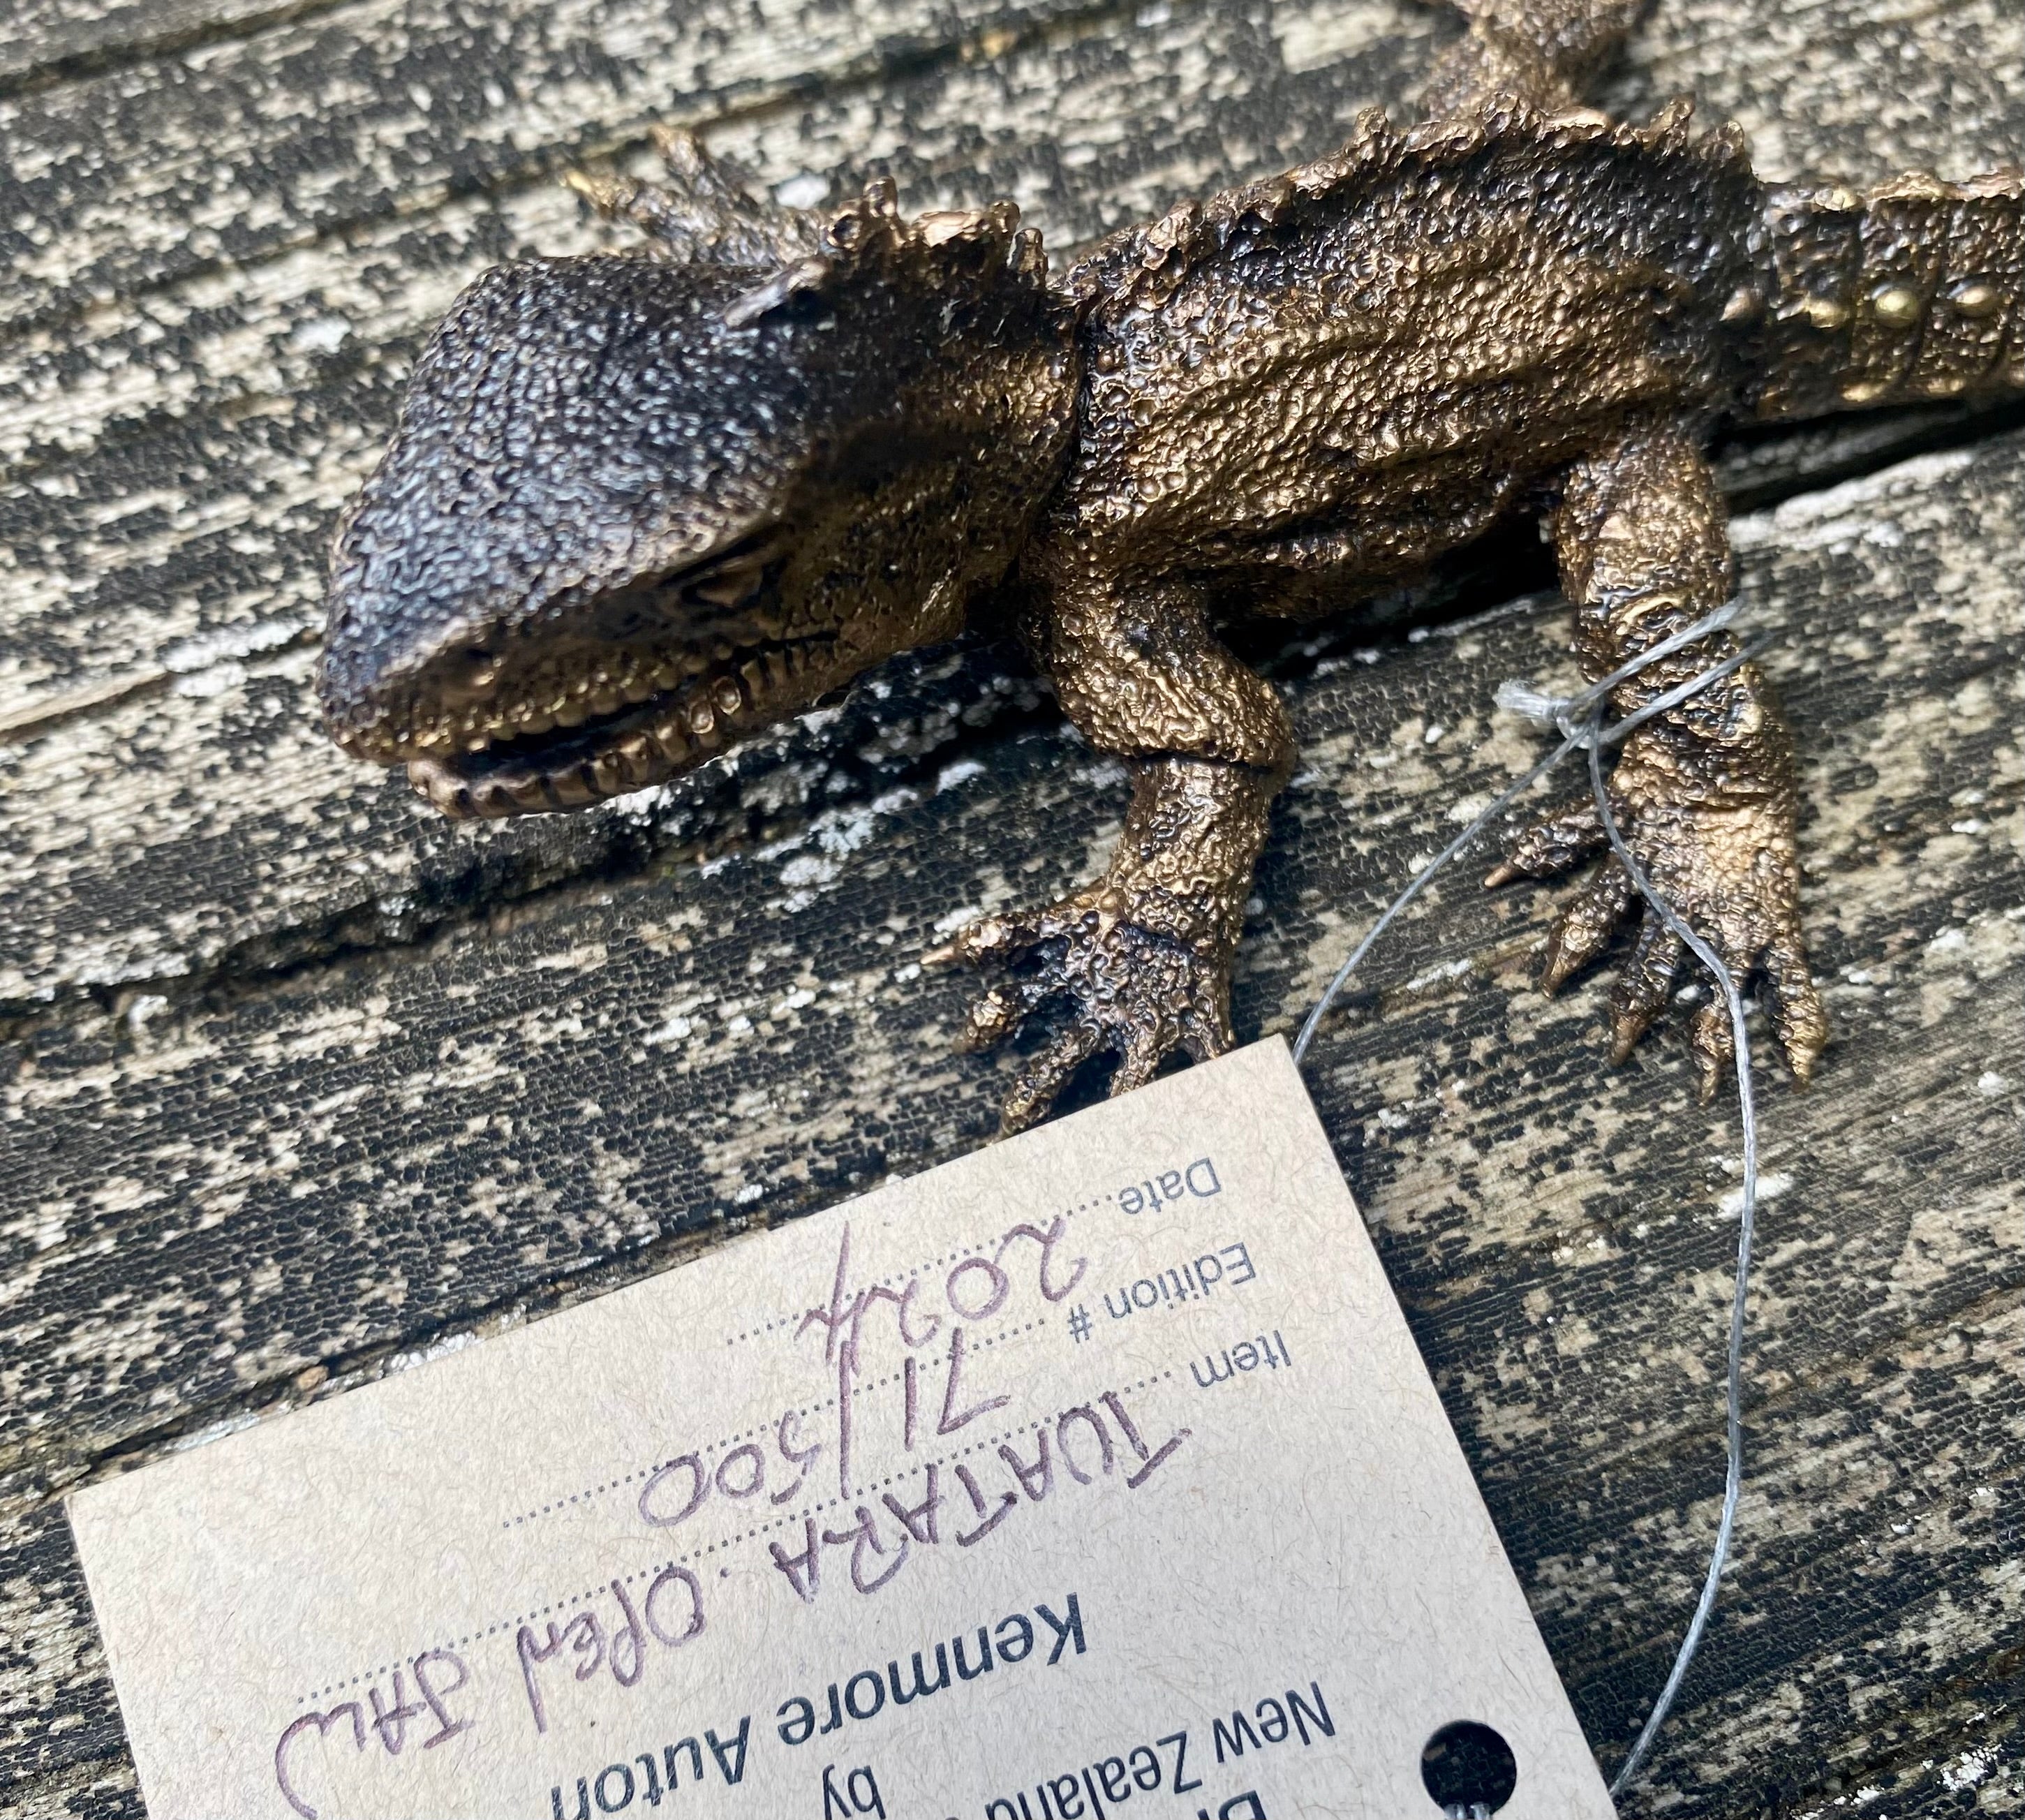 New Zealand
by
Kenmore Auton
Item TUATARA. OPEN JAW
Edition # 71/500
Date 2024